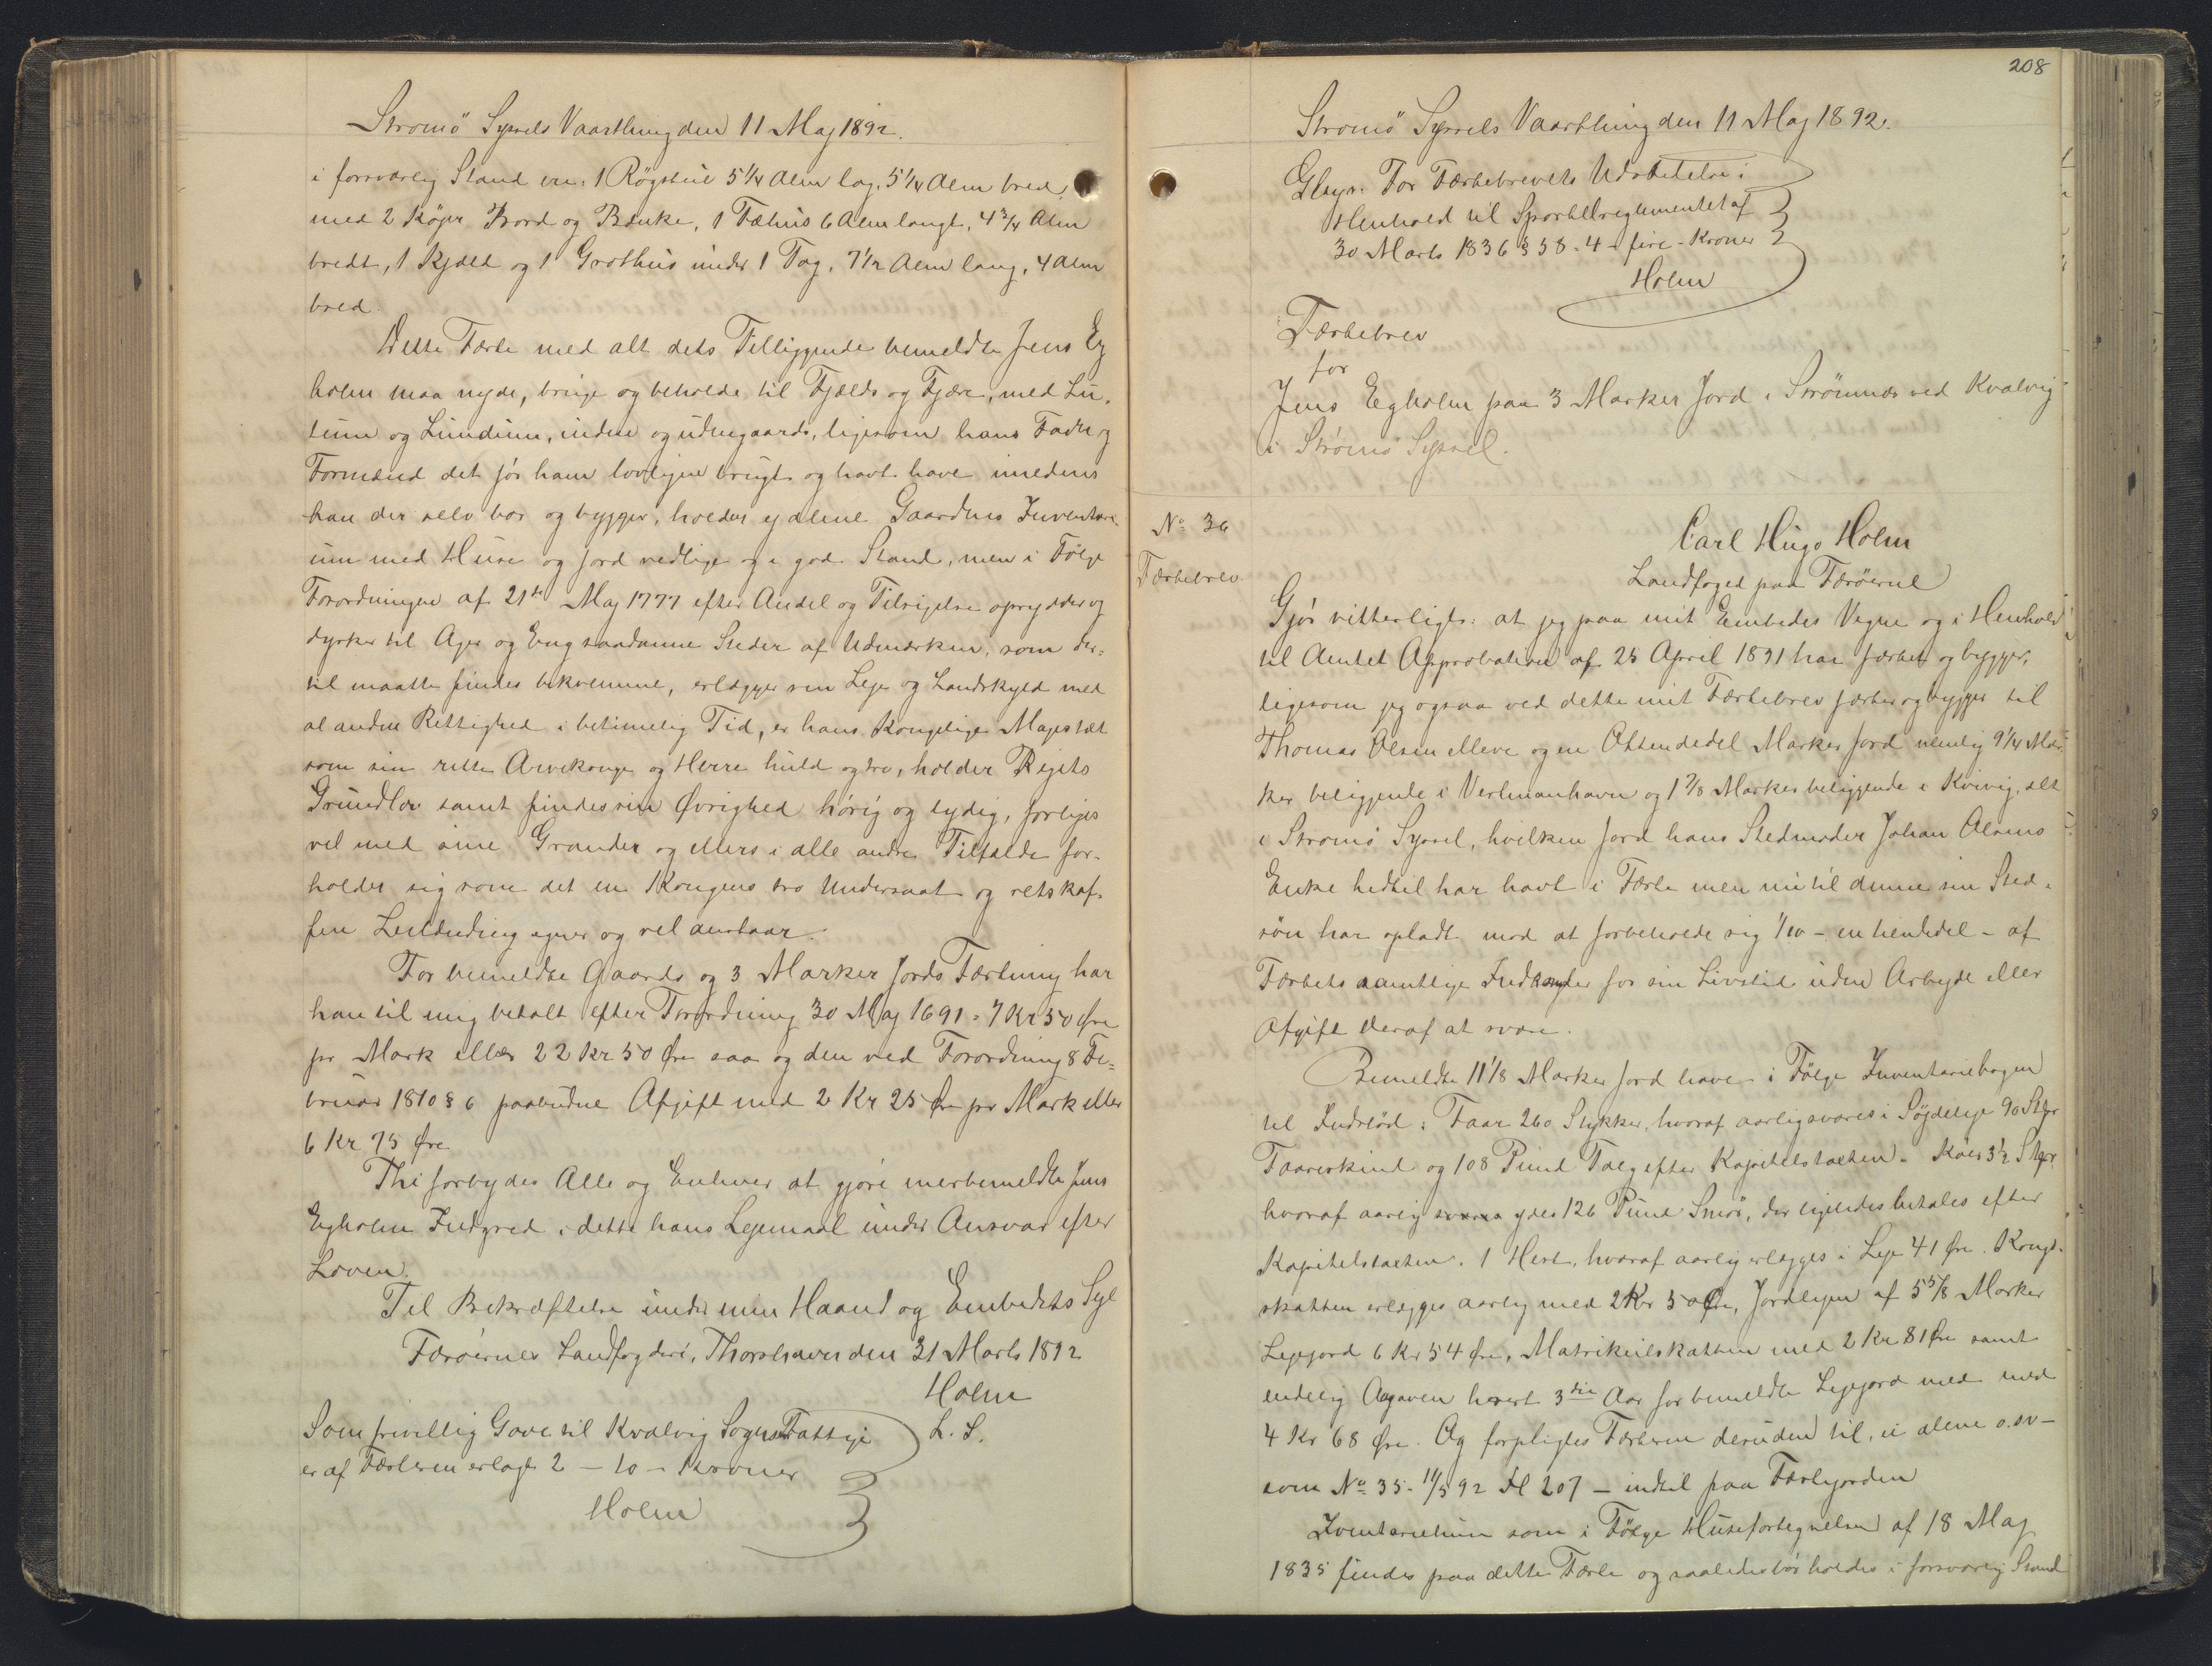 Strömö Syssels Vaarthing den 11 Maj 1892.
i forsvarlig Stand ere: 1 Røgstue 5 1/4 Alen lag, 5 1/4 Alen bred,
med 2 Køjer Bord og Bænke, 1 Fæhus 6 Alen langt, 4 3/4 Alen
bredt, 1 Kjæld og 1 Grothus under 1 Tag, 7 1/2 Alen lang, 4 Alen
bred.
Dette Fæste med alt dets Tilliggende bemeldte Jens Eg
holm maa nyde, bruge og beholde til Fjælds og Fjære, med Lu-
tum og Lundum, inden og udengaards, ligesom hans Fader og
Formænd det før ham lovligen brugt og havt have imedens
han der selv bor og bygger, holder ej alene Gaardens Inventari-
um med Huse og Jord vedlige og i god Stand, men i Følge
Forordningen af 21de Maj 1777 efter Andel og Tilsigelse oprydder og
dyrker til Ager og Eng saadanne Steder af Udmarken, som der-
til maatte findes bekvemme, erlægger sin Leje og Landskyld med
al anden Rettighed i betimelig Tid, er hans Kongelige Majestæt
som sin rette Arvekonge og Herre huld og tro, holder Rigets
Grundlov samt findes sin Øvrighed hørig og lydig, forliges
vel med sine Grander og ellers i alle andre Tilfælde for-
holder sig som det en Kongens tro Undersaat og retskaf-
fen Leilænding egner og vel anstaar.
For bemeldte Gaards og 3 Marker Jords Fæstning har
han til mig betalt efter Forordning 30 Maj 1691 = 7 Kr 50 Øre
pr Mark eller 22 Kr 50 Øre saa og den ved Forordning 8 Fe-
bruar 1810 § 6 paabudne Afgift med 2 Kr 25 Øre pr Mark eller
6 Kr 75 Øre
Thi forbydes Alle og Enhver at gjøre merbemeldte Jens
Egholm Indgreb i dette hans Lejemaal under Ansvar efter
Loven.
Til Bekræftelse under min Haand og Embedets Segl
Færøernes Landfogderi, Thorshavn den 31 Marts 1892
Holm
L. S.
Som frivillig Gave til Kvalvig Sogns Fattige
er af Fæsteren erlagt 2 - to - Kroner
Holm
208
Strömö Syssels Vaarthing den 11 Maj 1892.
Gebyr: For Fæstebrevets Udstedelse i
Henhold til Sportelreglementet af
30 Marts 1836 § 58 - 4 - fire - Kroner
Holm
Fæstebrev
for
Jens Egholm paa 3 Marker Jord i Strømnæs ved Kvalvig
i Strømø Syssel.
No 36
Fæstebrev
Carl Hugo Holm
Landfoged paa Færøerne
Gjør vitterligt: at jeg paa mit Embedes Vegne og i Henhold
til Amtet Approbation af 25 April 1891 har fæstet og bygget,
ligesom jeg ogsaa ved dette mit Fæstebrev fæster og bygger til
Thomas Olsen elleve og en Ottendedel Marker Jord nemlig 9 1/4 Mar-
ker beliggende i Vestmanhavn og 1 7/8 Marker beliggende i Kvivig, alt
i Strømø Syssel, hvilken Jord hans Stedmoder Johan Olsens
Enke hidtil har havt i Fæste men nu til denne sin Sted-
søn har opladt mod at forbeholde sig 1/10 - en tiendedel - af
Fæstets samtlige Indtægter for sin Livstid uden Arbejde eller
Afgift deraf at svare.
Bemeldte 11 1/8 Marker Jord have i Følge Inventariebogen
til Indstød: Faar 260 Stykker, hvoraf aarlig svares i Søjdeleje 90 Stkr
Faareskind og 108 Pund Talg efter Kapitelstaxten. Køer 3 1/2 Stkr
hvoraf aarlig ydes 126 Pund Smør, der ligeledes betales efter
Kapitelstaxten. 1 Hest, hvoraf aarlig erlægges i Leje 41 Øre. Kongs-
skatten erlægges aarlig med 2 Kr 50 Øre, Jordlejen af 5 5/8 Marker
Lejejord 6 Kr 54 Øre, Matrikulskatten med 2 Kr 81 Øre samt
endelig Aagaven hvert 3die Aar for bemeldte Lejejord med med
4 Kr 68 Øre. Og forpligtes Fæsteren desuden til, ei alene o.sv -
som No 35 - 11/5 92 Fl 207 - indtil paa Fæstejorden
Iventariehuse som i Følge Husefortegnelsen af 18 Maj
1835 findes paa dette Fæste og saaledes bør holdes i forsvarlig Stand